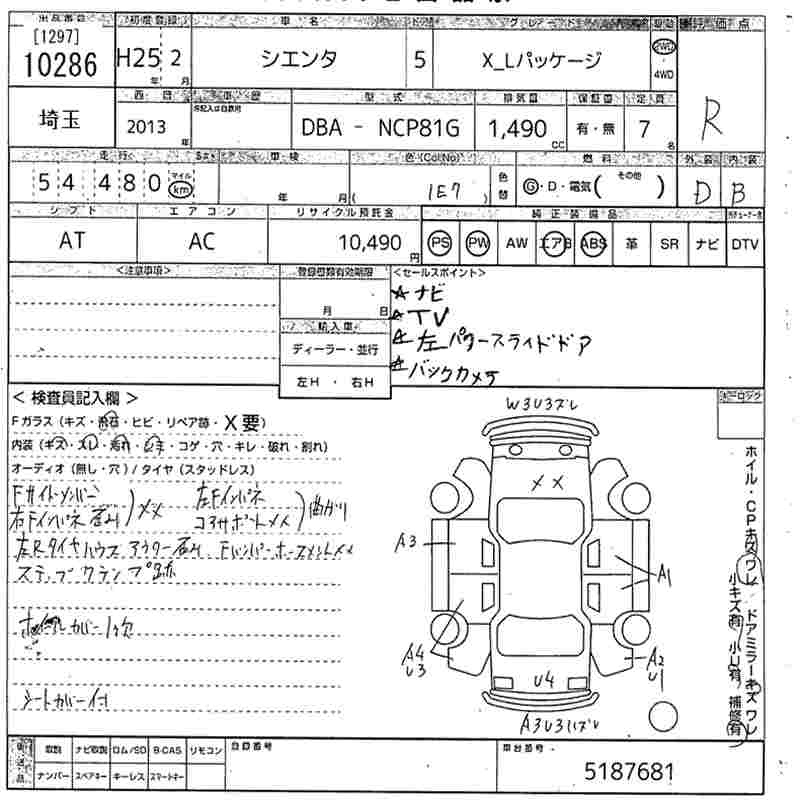 出品番号 初度登録 車名 ドア グレード 駆動 評価点
[1297]
10286 H25 年 2 月 シエンタ 5 X_Lパッケージ 2WD ・ 4WD R
西暦 車歴 型式 排気量 保証書 定員
埼玉 2013 年 DBA - NCP81G 1,490 CC 有・無 7 名
走行 車検 色(Col No) 燃料 外装 内装
54480 マイル km 年 月 ( 1E7 ) 色替 G・D・電気( その他 ) D B
シフト エアコン リサイクル預託金 純正装備品
AT AC 10,490 円 PS PW AW エアB ABS 革 SR ナビ DTV
<注意事項> 登録書類有効期限 <セールスポイント>
月 日 ☆ナビ
輸入車 ☆TV
ディーラー・並行 ☆左パワースライドドア
左H ・ 右H ☆バックカメラ
<検査員記入欄>
Fガラス(キズ・飛石・ヒビ・リペア跡・X要)
内装(キズ・スレ・汚れ・シミ・コゲ・穴・キレ・破れ・割れ)
オーディオ(無し・穴)/タイヤ(スタッドレス)
Fサイドメンバー 左Fインパネ
右Fインパネ 凹み )メメ コアサポートメメ )曲がり
左Rタイヤハウス アウター凹み Fバンパーホースメントメメ
ステップクランプ跡
カバー1ケ欠
シートカバー付
W3U3ズレ
××
A3
A1
A4
U3
A2
U1
U4
A3U3ズレ
ホイル・CPキズ ワレ ドアミラーキズ ワレ
小キズ有 小U有 補修有
取説 ナビ取説 ロム/SD B-CAS リモコン 自目番号 車台番号
ナンバー スペアキー キーレス スマートキー 5187681